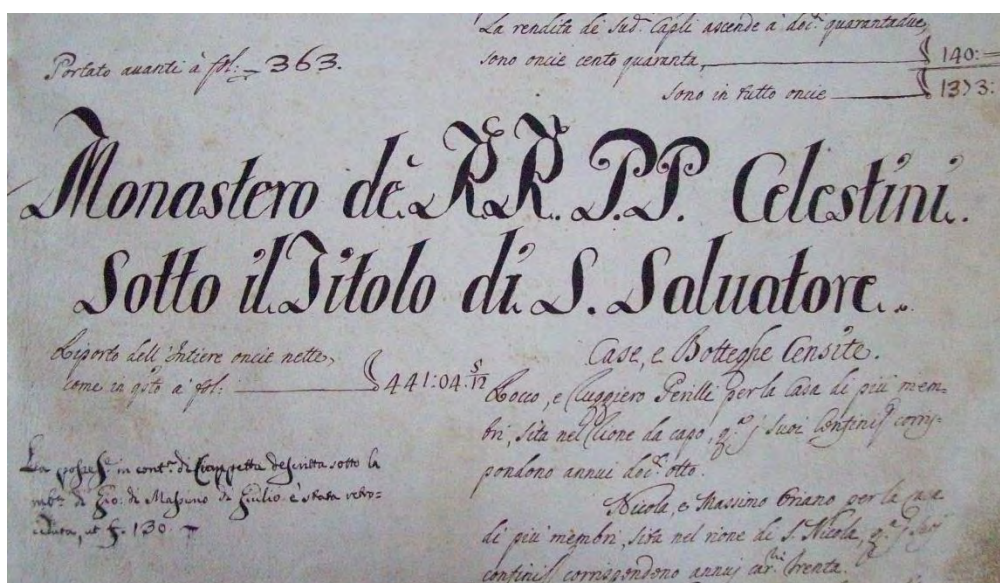 Portato auanti à fol: 363.
La rendita di sud.ͭ Capli ascende à doc.ͭ quarantadue,
sono oncie cento quaranta, 140:
sono in tutto oncie 1373:
Monastero dè RR. PP. Celestini.
Sotto il Titolo di S. Saluatore.
Riporto dell'Intiere oncie nette,
come in q̃sto à fol: 441:04: 5/12
La in cont.ͣ di Ciappetta descritta sotto la
di Gio: di Massimo di Giulio è stata retro-
ceduta, ut f. 130
Case, e Botteghe Censite.
Rocco, e Ruggiero Perilli per la Casa di più mem-
bri, sita nel Rione da capo, suoi confini corris-
pondono annui doc.ͭ otto.
Nicola, e Massimo Griano per la casa
di più membri, sita nel rione di S. Nicola, suoi
confini corrispondono annuj car.ͥ trenta.